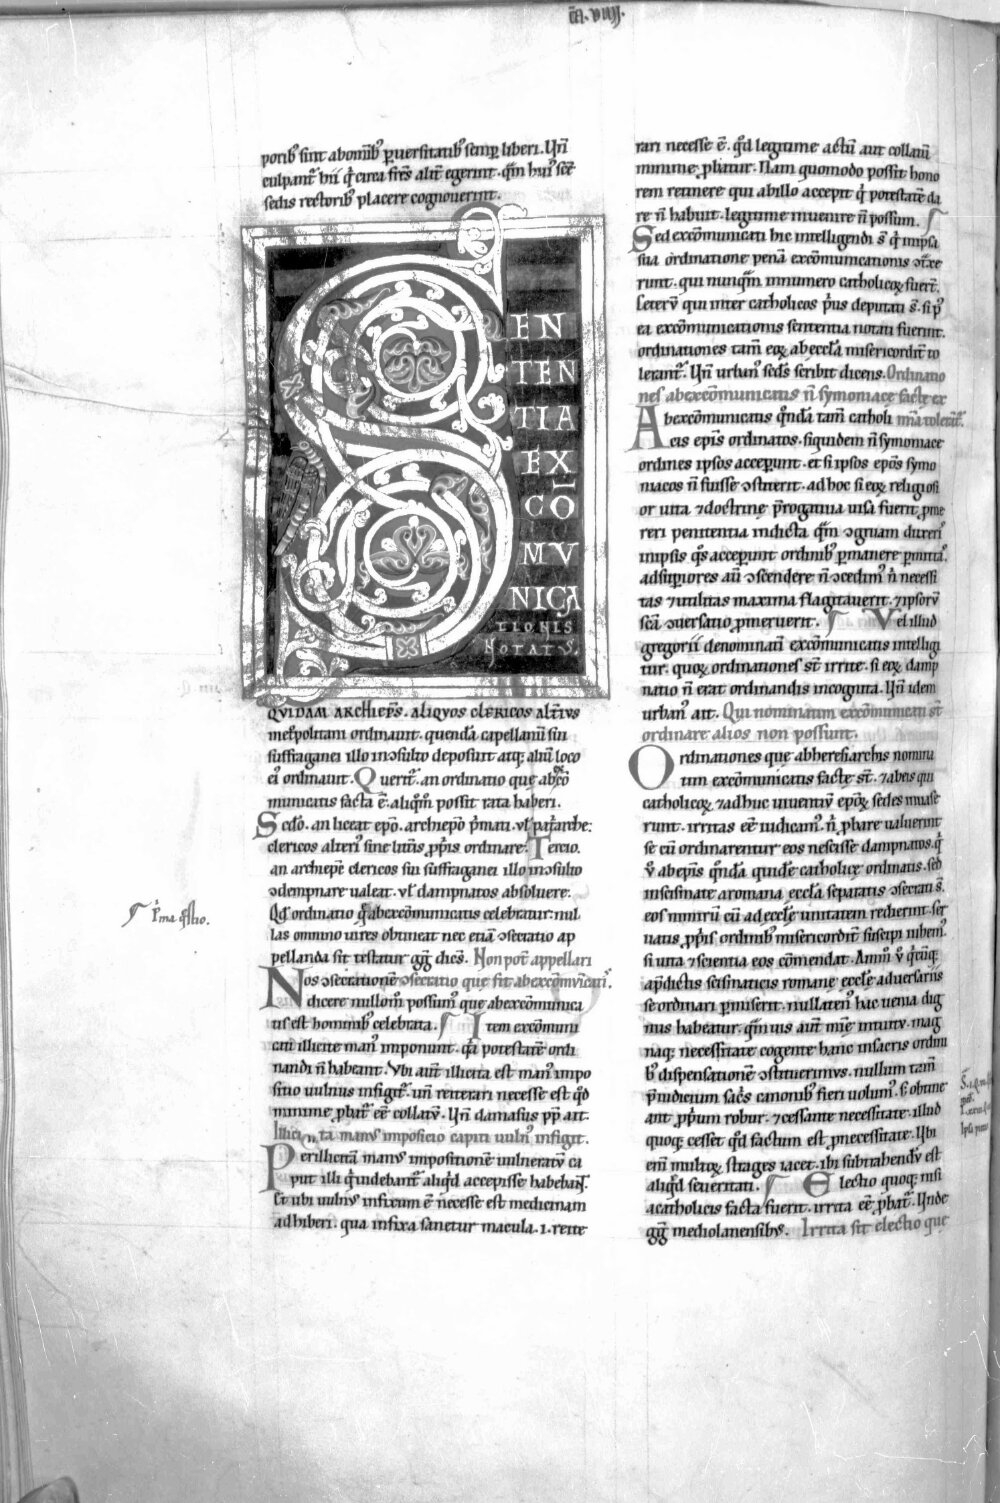 C̄A. VIIIJ.
porib; sint abomib; ꝑuersitatib; semꝑ liberi. Uñ
culpant᷑ hii q̇ circa frēs alit̄ egerint. qm̄ hui᷒ scē
sedis rectorib; placere cognouerint.
S EN
TEN
TIA
EX
CŌ
MV
NICA
TIONIS
NOTATVS.
QVIDAM ARCHIEPS̄. ALIQVOS CLERICOS ALTĪVS
met̄politani ordinauit. quendā capellanū sui
suffraganei illo inↄsulto deposuit atq; aliū loco
ei᷒ ordinauit. Querit᷑. an ordinatio que ab excō
municatis facta ē. aliqm̄ possit rata haberi.
Scdō. an liceat epō. archiepō p̄mati. vł pat̄arche:
clericos alteri᷒ sine litt̄is ꝓpriis ordinare. Tercio.
an archiepē clericos sui suffraganei illo inↄsulto
ↄdempnare ualeat. vł dampnatos absoluere.
Qd̄ ordinatio q̄ ab excōmunicatis celebratur: nul
las omnino uires obtineat nec etiā ↄsecratio ap
pellanda sit testatur gḡ dicēs. Non pot̄ appellari
Nos ↄsecrationē ↄsecratio que fit ab excōmvnicati᷒.
dicere nullom̄ possum᷒ que ab excōmunica
tis est hominib; celebrata. Item excōmuni
cati illicite man᷒ imponunt. qa potestatē ordi
nandi n̄ habeant. Vbi aut̄ illicita est man᷒ impo
sitio uulnus infigit᷑. uñ reiterari necesse est qd̄
minime ꝓbat᷑ eē collatū. Uñ damasius pp̄ ait.
Illicita manus imposicio capiti uuln᷒ infigit.
Per illicitā manus impositionē uulneratū ca
put illi q̇ indebant᷑ aliqd̄ accepisse habebant.
Et ubi uulnus infixum ē necesse est medicinam
adhiberi. qua infixa sanetur macula. i. reite
rari necesse ē. qd̄ legitime actū aut collatū
minime ꝓbatur. Nam quomodo possit hono
rem retinere qui ab illo accepit q̇ potestatē da
re n̄ habuit. legitime inuenire n̄ possum.
Sed excōmunicati hic intelligendi s̄ q̇ in ipsa
sua ordinatione penā excōmunicationis ↄt̄xe
runt. qui nunqm̄ in numero catholicoꝝ fuer̄t.
Ceterū qui inter catholicos p̄us deputati s̄. si p᷒
ea excōmunicationis sententia notati fuerint.
ordinationes tam̄ eoꝝ ab eccl̄a misericordit̄ to
lerant᷑. Uñ urban᷒ scds̄ scribit dicens. Ordinatio
nes ab excōmunicatis n̄ symoniace facte ex
Ab excōmunicatis qndā tam̄ catholi mīa tolerāt᷑.
cis epīs ordinatos. siquidem n̄ symoniace
ordines ipsos acceperunt. et si ipsos epōs symo
niacos n̄ fuisse ↄstiterit. ad hoc si eoꝝ religiosi
or uita ⁊ doctrinę p̄rogatiua uisa fuerit. ꝓme
reri. penitentia indicta qm̄ ↄgruam duxeri᷒
in ipsis qs̄ acceperunt ordinib; ꝑmanere ꝑmitti᷒.
ad supiores aū ↄscendere n̄ ↄcedim᷒ n̄ necessi
tas ⁊ utilitas maxima flagitauerit. ⁊ ipsorū
scā ↄuersatio ꝓmeruerit. Vel illud
gregorii de nominatī excōmunicatis intelligi
tur. quoꝝ ordinationes st̄ irrite. si eoꝝ damp
natio n̄ erat ordinandis incognita. Uñ idem
urban᷒ ait. Qui nominatim excōmunicati st̄
ordinare alios non possunt.
Ordinationes que ab heresiarchis nomina
tim excōmunicatis facte st̄. ⁊ ab eis qui
catholicoꝝ ⁊ adhuc uiuentiū epōꝝ sedes inuase
runt. irritas eē iudicam᷒. n̄ ꝓbare ualuerint
se cū ordinarentur eos nescisse dampnatos. q̇
ū ab epīs qndā quidē catholice ordinatis. sed
in scismate a romana eccl̄a separatis ↄsecrati s̄.
eos nimirū cū ad eccłe unitatem redierint. ser
uatis ꝓpriis ordinib; misericordit̄ suscipi iubem᷒.
si uita ⁊ scientia eos cōmendat. Amm̄ ū q̇cūq;
a p̄dictis scismaticis romane eccłe aduersariis
se ordinari ꝑmiserit. nullaten᷒ hac uenia dig
nus habeatur. qm̄uis aut̄ mīe intuitu. mag
naq; necessitate cogente hanc in sacris ordini
b; dispensationē ↄstituerimus. nullum tam̄
p̄iudicium sacris canonib; fieri uolum᷒. s; obtine
ant ꝓprium robur. ⁊ cessante necessitate. illud
quoq; cesset qd̄ factum est ꝓ necessitate. Ubi
eñ multoꝝ strages iacet. ibi subtrahendū est
aliqd̄ seueritati. Electio quoq; nisi
a catholicis facta fuerit. irrita eē ꝓbat᷑. Unde
gḡ mediolanensibus. Irrita sit electio que
P̄ma q̄stio.